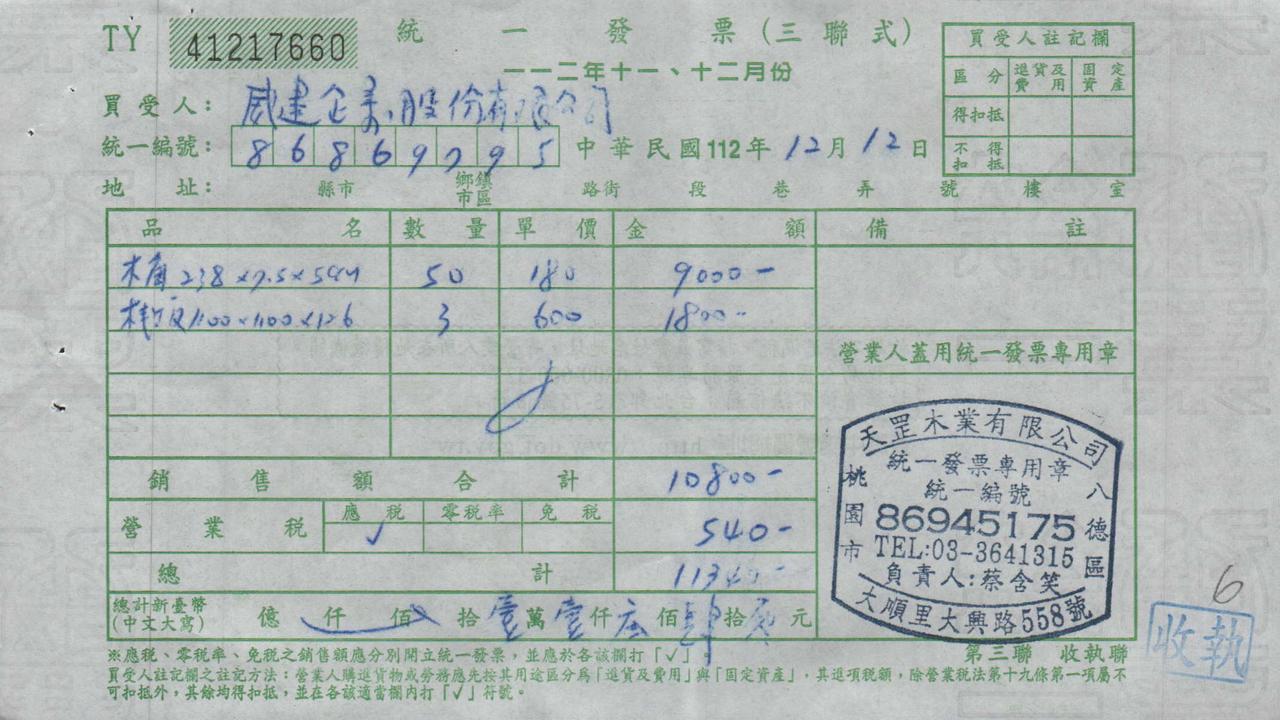 TY 41217660 統一發票(三聯式)
一一二年十一、十二月份
買受人註記欄
區分 進貨及費用 固定資產
得扣抵
不得扣抵
買受人: 威建企業股份有限公司
統一編號: 86869795 中華民國112年12月12日
地址: 縣市 鄉鎮市區 路街 段 巷 弄 號 樓 室
品名 數量 單價 金額 備註
50 180 9000-
1100x1100x126 3 600 1800-
營業人蓋用統一發票專用章
銷售額合計 10800-
營業稅 應稅 ✓ 零稅率 免稅 540-
總計 11340-
總計新臺幣(中文大寫) 億 仟 佰 拾 壹萬 壹仟 佰 肆拾 元
天罡木業有限公司
統一發票專用章
統一編號
86945175
TEL:03-3641315
負責人:蔡含笑
桃園市
八德區
大順里大興路558號
6
收執
第三聯 收執聯
※應稅、零稅率、免稅之銷售額應分別開立統一發票,並應於各該欄打「✓」。
買受人註記欄之註記方法:營業人購進貨物或勞務應先按其用途區分為「進貨及費用」與「固定資產」,其進項稅額,除營業稅法第十九條第一項屬不
可扣抵外,其餘均得扣抵,並在各該適當欄內打「✓」符號。